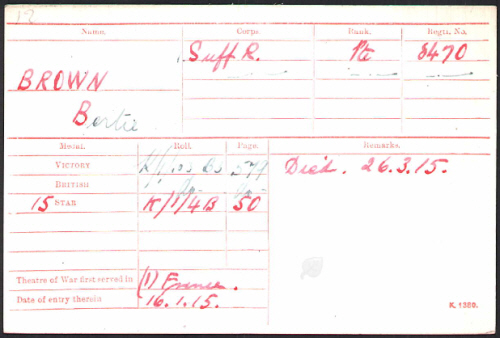 12
Name. Corps. Rank. Regtl. No.
Suff R. Pte 8470
BROWN
Bertie
Medal. Roll. Page. Remarks.
VICTORY K/1/ 579 Died. 26.3.15.
BRITISH Do Do
15 STAR K/1/4B 50
Theatre of War first served in (1) France.
Date of entry therein 16.1.15.
K. 1380.